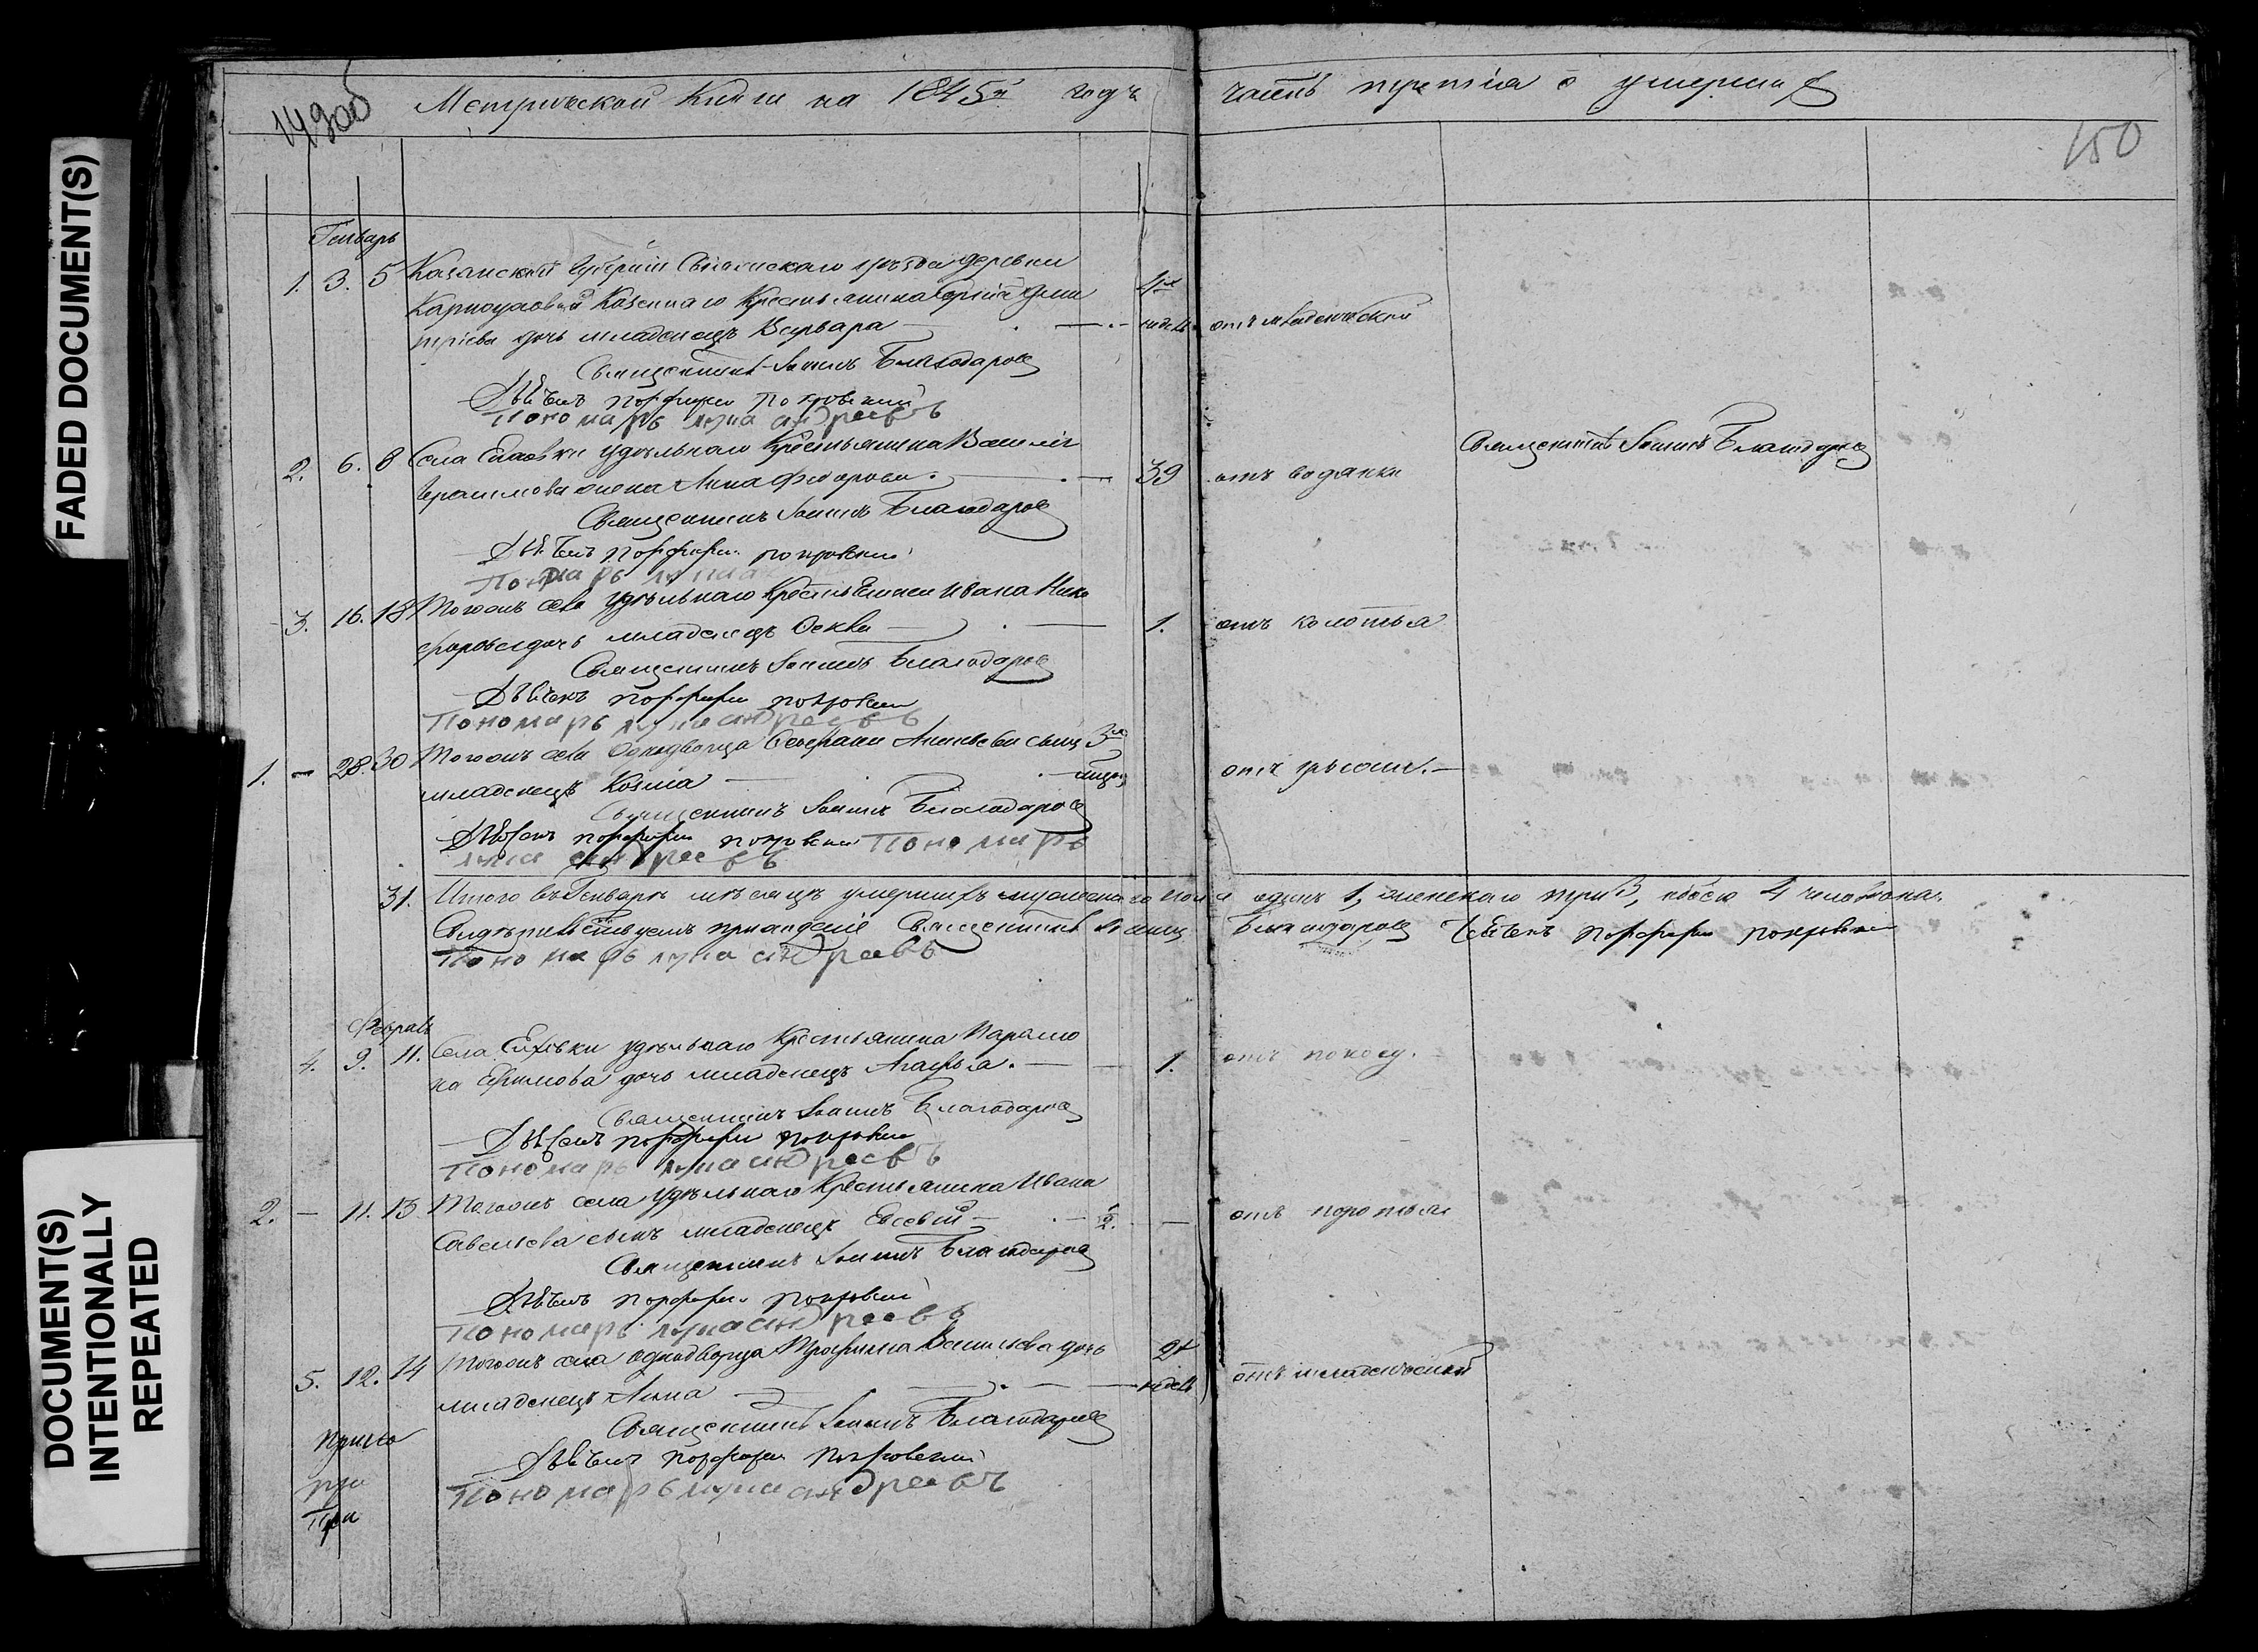 FADED DOCUMENT(S)
DOCUMENT(S)
INTENTIONALLY
REPEATED
149об
Метрической Книги на 1845й годъ часть третія о умерших
150
Генварь
1. 3. 5 Казанской Губерніи Свіяжскаго уѣзда деревни
казеннаго Крестьянина Дми
тріева дочь младенецъ Варвара недель отъ младенческой
Священникъ Іоаннъ Благодаров
Дьячекъ порфирий покровский
Пономарь лука андреевъ
2. 6. 8 Села Елховки удѣльнаго Крестьянина Василія
Герасимова жена Анна Федорова. 39 отъ водянки
Священникъ Іоаннъ Благодаров
Священникъ Іоаннъ Благодаров
Дьячекъ порфирий покровский
Пономарь лука
3. 16. 18 Тогожъ села удѣльнаго Крестьянина Ивана Ники
форова дочь младенецъ 1. отъ колотья
Священникъ Іоаннъ Благодаров
Дьячекъ порфирий покровский
Пономарь лука андреевъ
1. – 28. 30 Тогожъ села Однодворца сынъ 3х
младенецъ Козма отъ
Священникъ Іоаннъ Благодаров
Дьячекъ порфирий покровский Пономарь
лука андреевъ
31. Итого въ Генварѣ мѣсяцѣ умершихъ мужеска го пола одинъ 1, женскаго три 3, обоего 4 человѣка.
Священникъ Іоаннъ Благодаров Дьячекъ порфирий покровский
Пономарь лука андреевъ
Февраль
4. 9. 11. Села Елховки удѣльнаго Крестьянина Парамо
на Ефимова дочь младенецъ Агафья. 1. отъ поносу.
Священникъ Іоаннъ Благодаров
Дьячекъ порфирий покровский
Пономарь лука андреевъ
2. – 11. 13 Тогожъ села удѣльнаго Крестьянина Ивана
Савельева сынъ младенецъ Евсевій – отъ
Священникъ Іоаннъ Благодаров
Дьячекъ порфирий покровский
Пономарь лука андреевъ
5. 12. 14 Тогожъ села однодворца Трофима Васильева дочь 2х
младенецъ Анна недель отъ младенческой
Священникъ Іоаннъ Благодаров
Дьячекъ порфирий покровский
Пономарь лука андреевъ
при